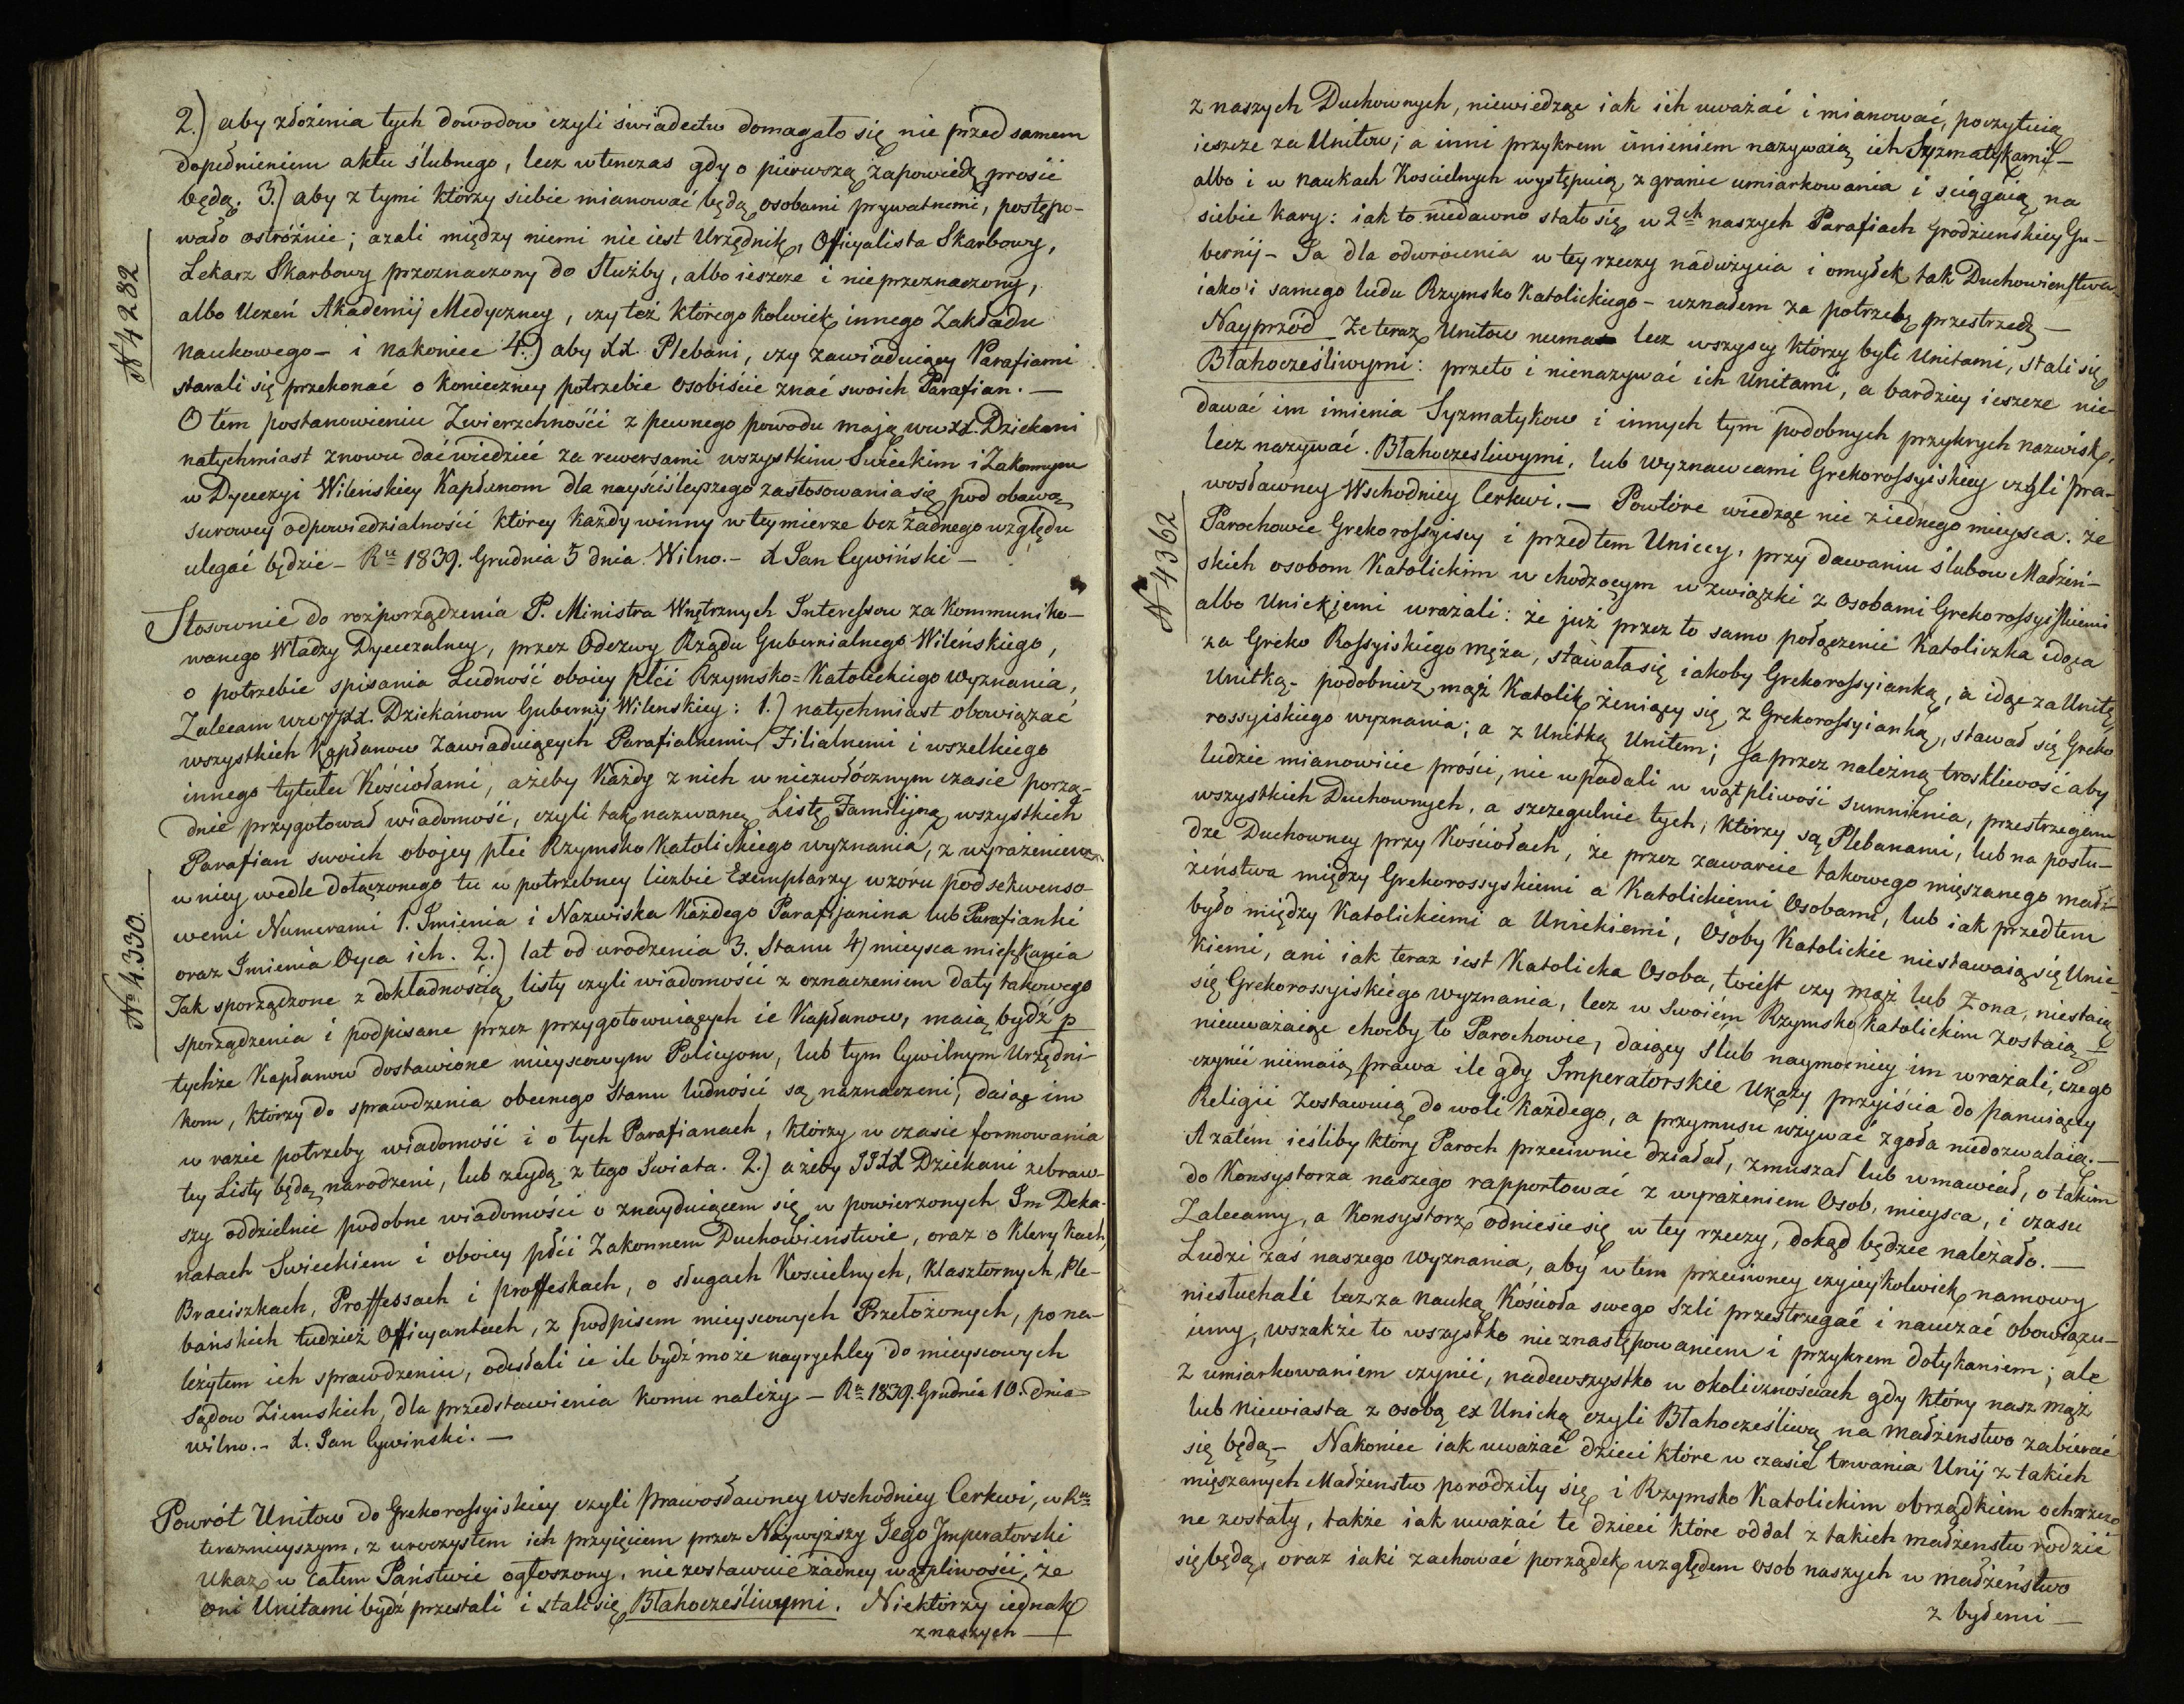 2.) aby złożenia tych dowodow czyli świadectw domagało się nie przed samem
dopełnieniem aktu ślubnego, lecz wtenczas gdy o pierwszą zapowiedź prosić
będą. 3.) aby z tymi którzy siebie mianować będą osobami prywatnemi, postępo-
wało ostróżnie; azali między niemi nie iest Urzędnik, Officyalista Skarbowy,
Lekarz Skarbowy przeznaczony do Służby, albo ieszcze i nieprzeznaczony,
albo Uczeń Akademij Medyczney, czy też którego kolwiek innego Zakładu
Naukowego – i nakoniec 4.) aby XX. Plebani, czy zawiaduiący Parafiami
starali się przekonać o konieczney potrzebie osobiście znać swoich Parafian. —
O tém postanowieniu Zwierzchności z pewnego powodu mają WWXX. Dziekani
natychmiast znowu dać wiedzieć za rewersami wszystkim Swieckim i Zakonnym
w Dyecezyi Wileńskiey Kapłanom dla nayściśleyszego zastosowania się pod obawą
surowey odpowiedzialności którey każdy winny w tey mierze bez żadnego względu
ulegać będzie – Ru 1839. Grudnia 5 dnia. Wilno. – X Jan Cywiński –
N 4282
Stosownie do rozporządzenia P. Ministra Wnętrznych Interessow zakommuniko-
wanego Władzy Dyecezalney, przez Odezwy Rządu Gubernialnego Wileńskiego,
o potrzebie spisania Ludność oboiey płci Rzymsko=Katolickiego wyznania,
Zalecam WWJJXX. Dziekanom Gubernij Wilenskiey: 1.) natychmiast obowiązać
wszystkich Kapłanow Zawiaduiących Parafialnemi, Filialnemi i wszelkiego
innego tytułu Kościołami, ażeby Każdy z nich w niezwłócznym czasie porzą-
dnie przygotował wiadomość, czyli tak nazwaney Listę Familijną wszystkich
Parafian swoich obojey płci Rzymsko Katolickiego wyznania, z wyrażeniem
w niey wedle dołączonego tu w potrzebney liczbie Exemplarzy wzoru pod sekwenso-
wemi Numerami 1. Imienia i Nazwiska Każdego Parafijanina lub Parafianki
oraz Imienia Oyca ich. 2.) lat od urodzenia 3. Stanu 4) mieysca mieszkania
Tak sporządzone z dokładnością listy czyli wiadomości z oznaczeniem daty takowego
sporządzenia i podpisane przez przygotowuiących ie Kapłanow, maią bydź p
tychże Kapłanow dostawione mieyscowym Policyom, lub tym Cywilnym Urzędni-
kom, którzy do sprawdzenia obecnego stanu ludności są naznaczeni, daiąc im
w razie potrzeby wiadomość i o tych Parafianach, którzy w czasie formowania
tey Listy będą narodzeni, lub zeydą z tego Swiata. 2.) ażeby JJXX Dziekani zebraw-
szy oddzielnie podobne wiadomości o znayduiącem się w powierzonych Im Deka-
natach Swieckiem i oboiey płci Zakonnem Duchowieństwie, oraz o Klerykach,
Braciszkach, Proffessach i proffeskach, o sługach Koscielnych, Klasztornych, Ple-
bańskich tudzież Officyantach, z podpisem mieyscowych Przełożonych, po na-
leżytem ich sprawdzeniu, odesłali ie ile bydź może nayrychley do mieyscowych
Sądow Ziemskich, dla przedstawienia komu należy – Ru 1839. Grudnia 10. dnia
Wilno. – X. Jan Cywinski. —
No 4330.
Powrót Unitow do Grekorossyiskiey czyli prawosławney wschodniey Cerkwi, w Ru
teraznieyszym, z uroczystem ich przyięciem przez Naywyższy Jego Imperatorski
Ukaz w całem Państwie ogłoszony, nie zostawuie żadney wątpliwości, że
oni Unitami bydź przestali i stali się Błahocześliwymi. Niektorzy iednak
z naszych —
z naszych Duchownych, niewiedząc iak ich uważać i mianować, poczytuią
ieszcze za Unitow; a inni przykrem imieniem nazywaią ich Syzmatykami –
albo i w naukach Koscielnych występuią z granic umiarkowania i ściągaią na
siebie kary: iak to niedawno stało się w 2ch naszych Parafiach Grodzienskiey Gu-
bernij – Ja dla odwrócenia w tey rzeczy nadużycia i omyłek tak Duchowieństwa
iako i samego ludu Rzymsko Katolickiego – uznałem za potrzebę przestrzedz —
Nayprzód Że teraz Unitow niema lecz wszyscy którzy byli Unitami, stali się
Błahocześliwymi: przeto i nienazywać ich Unitami, a bardziey ieszcze nie-
dawać im imienia Syzmatykow i innych tym podobnych przykrych nazwisk,
lecz nazywać Błahocześliwymi, lub Wyznawcami Grekorossyiskiey czyli pra-
wosławney Wschodniey Cerkwi. — Powtóre wiedząc nie ziednego mieysca, że
Parochowie Grekorossyiscy i przedtem Uniccy, przy dawaniu ślubow Małżeń-
skich osobom Katolickim wchodzącym w związki z osobami Grekorossyiskiemi
albo Unickiemi wrażali: że już przez to samo połączenie Katoliczka idąca
za Greko Rossyiskiego męża, stawała się iakoby Grekorossyianką, a idąc za Unitę
Unitką – podobnież mąż Katolik żeniący się z Grekorossyianką, stawał się Greko
rossyiskiego wyznania; a z Unitką Unitem; Ja przez należną troskliwość aby
ludzie mianowicie prości, nie wpadali w wątpliwość sumnienia, przestrzegam
wszystkich Duchownych, a szczegulnie tych, którzy są Plebanami, lub na postu-
dze Duchowney przy Kościołach, że przez zawarcie takowego mięszanego małż-
żeństwa między Grekorossyskiemi a Katolickiemi Osobami, lub iak przedtem
było między Katolickiemi a Unickiemi, Osoby Katolickie niestawaią się Unic-
kiemi, ani iak teraz iest Katolicka Osoba, toiest czy mąż lub Żona, niestaią
się Grekorossyiskiego Wyznania, lecz w Swoiém Rzymsko Katolickim zostaią –
nieuważaiąc choćby to Parochowie, daiący Slub naymocniey im wrażali, czego
czynić niemaią prawa ile gdy Imperatorskie Ukazy przyiścia do panuiącey
Religii zostawuią do woli każdego, a przymusu używać zgoła niedozwalaią. —
A zatém ieśliby który Paroch przeciwnie działał, zmuszał lub wmawiał, o takim
do Konsystorza naszego rapportować z wyrażeniem Osob, mieysca, i czasu
Zalecamy, a Konsystorz odniesie się w tey rzeczy, dokąd będzie należało. —
Ludzi zaś naszego Wyznania, aby w tem przeciwney czyieykolwiek namowy
niesłuchali lecz za nauką Kościoła swego szli przestrzegać i nauczać obowiązu-
iemy, wszakże to wszystko nie znastępowaniem i przykrem dotykaniem; ale
z umiarkowaniem czynić, nadewszystko w okolicznościach gdy który nasz mąż
lub niewiasta z osobą ex Unicką czyli Błahocześliwą na małżeństwo zabierać
się będą – Nakoniec iak uważać dzieci które w czasie trwania Unij z takich
mięszanych Małżenstw porodziły się i Rzymsko Katolickim obrządkiem ochrzczo-
ne zostały, także iak uważać te dzieci które oddal z takich małżenstw rodzić
się będą, oraz iaki zachować porządek względem osob naszych w małżeństwo
z byłemi —
N 4362